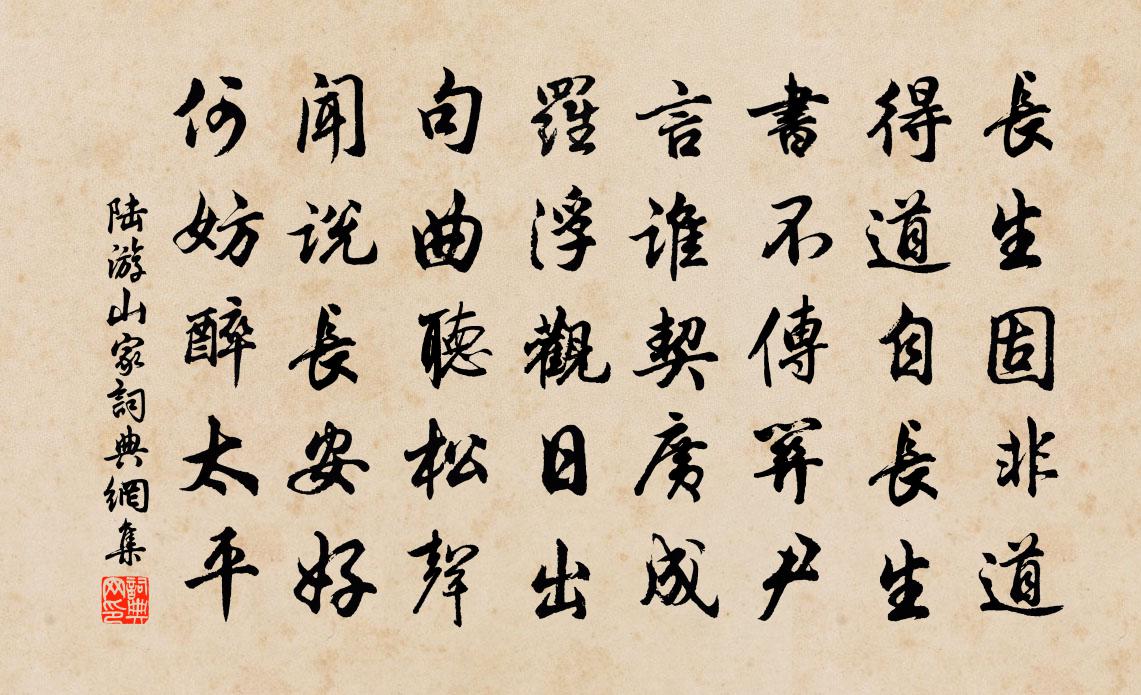 長生固非道
得道自長生
書不傳關尹
言誰契廣成
羅浮觀日出
句曲聽松聲
聞說長安好
何妨醉太平
陸游山家詞典網集
詞典网印